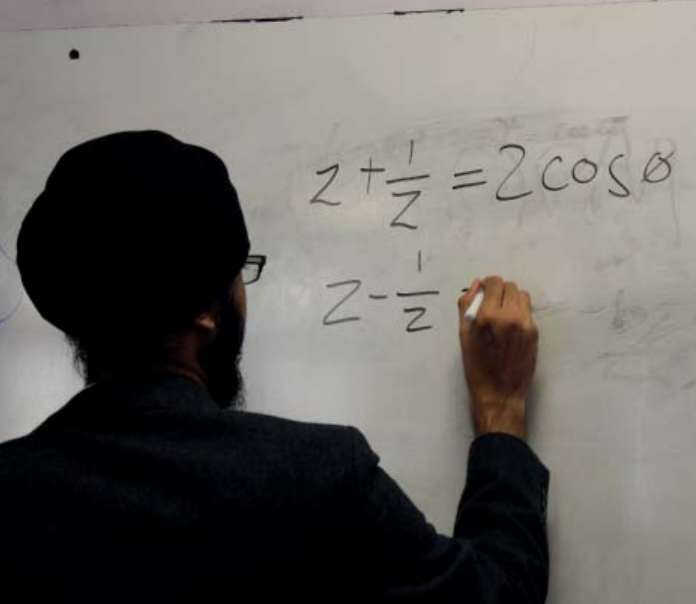 z + 1/z = 2cosθ
z - 1/z